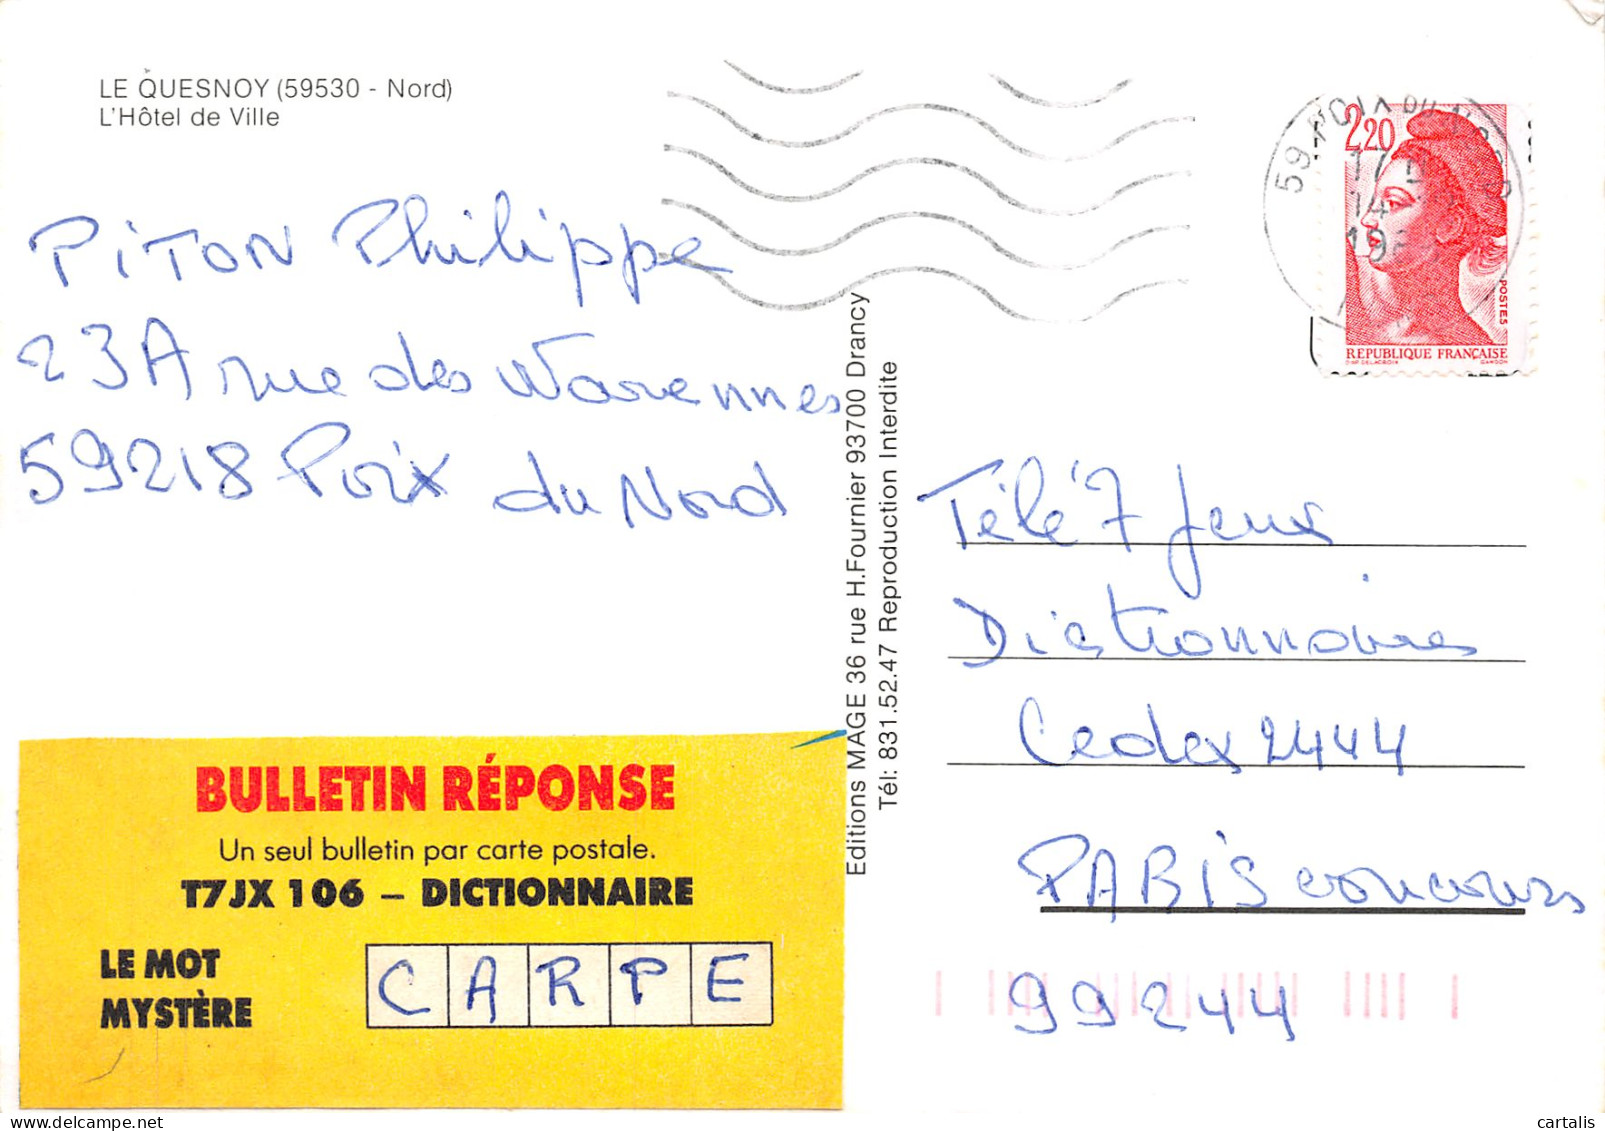 LE QUESNOY (59530 - Nord)
L'Hôtel de Ville
PITON Philippe
23A rue des Warennes
59218 Poix du Nord
Editions MAGE 36 rue H.Fournier 93700 Drancy
Tél: 831.52.47 Reproduction Interdite
2,20
POSTES
REPUBLIQUE FRANÇAISE
59 POIX DU NORD
14
Télé 7 Jeux
Dictionnaires
Cedex 2444
PARIS concours
99244
BULLETIN RÉPONSE
Un seul bulletin par carte postale.
T7JX 106 – DICTIONNAIRE
LE MOT
MYSTÈRE
CARPE
cartalis